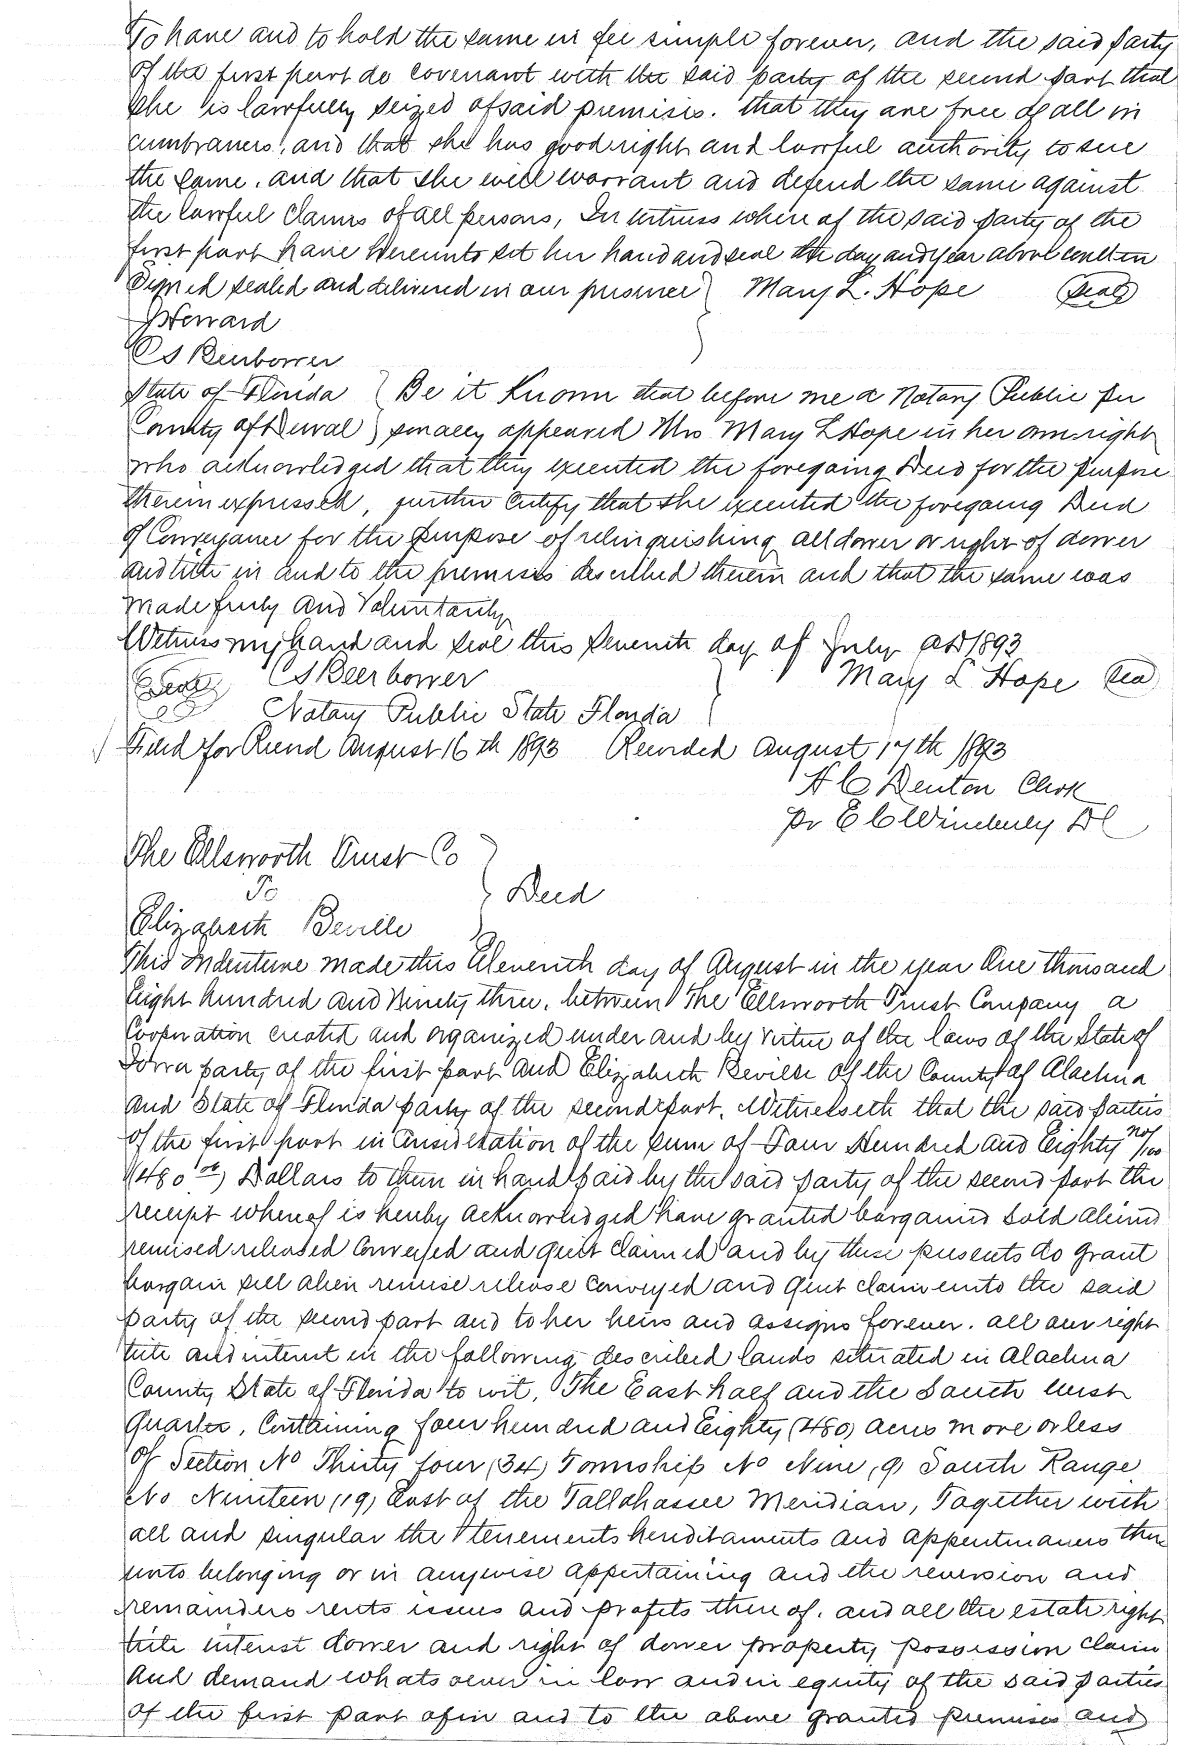 To have and to hold the same in fee simple forever, and the said party
of the first part do covenant with the said party of the second part that
she is lawfully seized of said premises. that they are free of all in
cumbrances, and that she has good right and lawful authority to sell
the same. and that she will warrant and defend the same against
the lawful claims of all persons, In witness where of the said party of the
first part have hereunto set her hand and seal the day and year above written
Signed sealed and delivered in our presence } Mary L. Hope (Seal)
J Herrard
C S Beerbower
State of Florida } Be it Known that before me a Notary Public per
County of Duval } sonally appeared Mrs Mary L Hope in her own right
who acknowledged that they executed the foregoing Deed for the purpose
therein expressed, further certify that she executed the foregoing Deed
of Conveyance for the purpose of relinquishing all dower or right of dower
and title in and to the premises described therein and that the same was
made freely and Voluntarily
Witness my hand and seal this Seventh day of July AD 1893
(Seal) C S Beerbower } Mary L Hope (Sea)
Notary Public State Florida
Filed for Record August 16th 1893 Recorded August 17th 1893
H C Denton Clerk
Pr E C Wimberly DC
The Ellsworth Trust Co
To } Deed
Elizabeth Beville
This Indenture made this Eleventh day of August in the year One thousand
Eight hundred and Ninety three. between The Ellsworth Trust Company a
Cooporation created and organized under and by virtue of the laws of the State of
Iowa party of the first part and Elizabeth Beville of the County of Alachua
and State of Florida party of the second part. Witnesseth that the said parties
of the first part in Consideration of the sum of Four Hundred and Eighty no/100
(480 00) Dollars to them in hand paid by the said party of the second part the
receipt whereof is hereby acknowledged have granted bargained sold aliened
remised released conveyed and quit claimed and by these presents do grant
bargain sell alien remise release conveyed and quit claim unto the said
party of the second part and to her heirs and assigns forever. all our right
title and interest in the following described lands situated in Alachua
County State of Florida to wit, The East half and the South West
Quarter, Containing four hundred and Eighty (480) acres more or less
of Section No Thirty four (34) Township No Nine (9) South Range
No Nineteen (19) East of the Tallahassee Meridian, Together with
all and singular the tenements hereditaments and appertinances there
unto belonging or in anywise appertaining and the reversion and
remainders rents issues and profits there of. and all the estate right
title interest dower and right of dower property possession claim
and demand whatsoever in law and in equity of the said parties
of the first part of in and to the above granted premises and